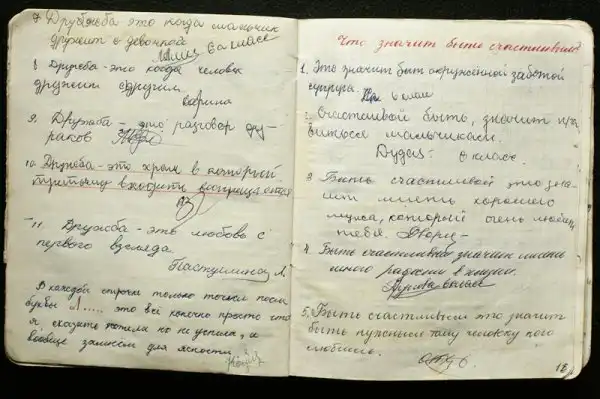 7. Дружба это когда мальчик
дружит с девочкой
6 а класс
8. Дружба - это когда человек
дружит с другим.
Ларина
9. Дружба - это разговор ду-
раков
10. Дружба - это храм в который
притону входить воспрещается
11. Дружба - это любовь с
первого взгляда.
Пастушина Л.
В каждой строчке только точки после
буквы Л..... это всё конечно просто что
я сказать хотела но не успела, и
вообще запишем для ясности.
Что значит быть счастливым?
1. Это значит быть окружённой заботой
супруга. 6 класс
Счастливой быть, значит
мальчикам.
6 класс.
3. Быть счастливой это зна-
чит иметь хорошего
мужа, который очень любит
тебя.
4. Быть счастливой значит иметь
много радости в жизни.
5. Быть счастливым это значит
быть нужным тому человеку кого
любишь.
18